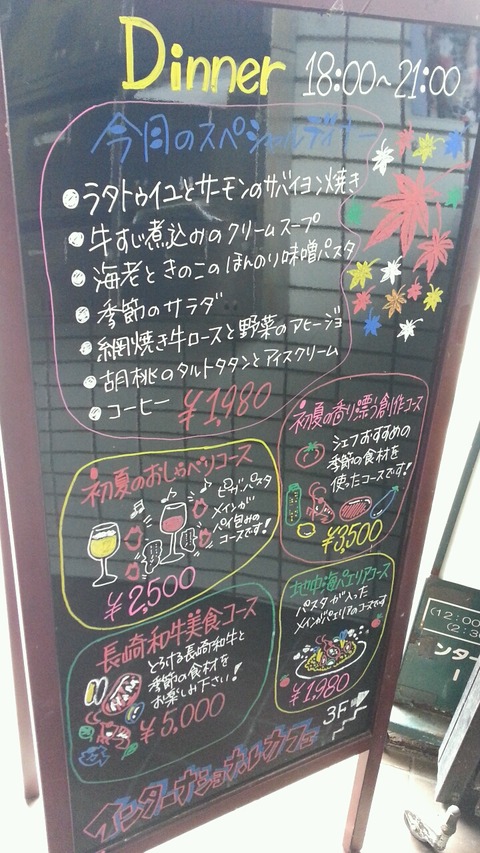 Dinner 18:00~21:00
今月のスペシャルディナー
ラタトゥイユとサーモンのサバイヨン焼き
牛すじ煮込みのクリームスープ
海老ときのこのほんのり味噌パスタ
季節のサラダ
網焼き牛ロースと野菜のアヒージョ
胡桃のタルトタタンとアイスクリーム
コーヒー ¥1,980
初夏の香り漂う創作コース
シェフおすすめの
季節の食材を
使ったコースです!
¥3,500
初夏のおしゃべりコース
ピザ、パスタ
メインが
パイ包みの
コースです!
¥2,500
地中海パエリアコース
パスタが入った
メインがパエリアのコースです
¥1,980
長崎和牛美食コース
とろける長崎和牛と
季節の食材を
お楽しみ下さい!
¥5,000
3F
インターナショナルカフェ
(12:00
(2:3
ンター